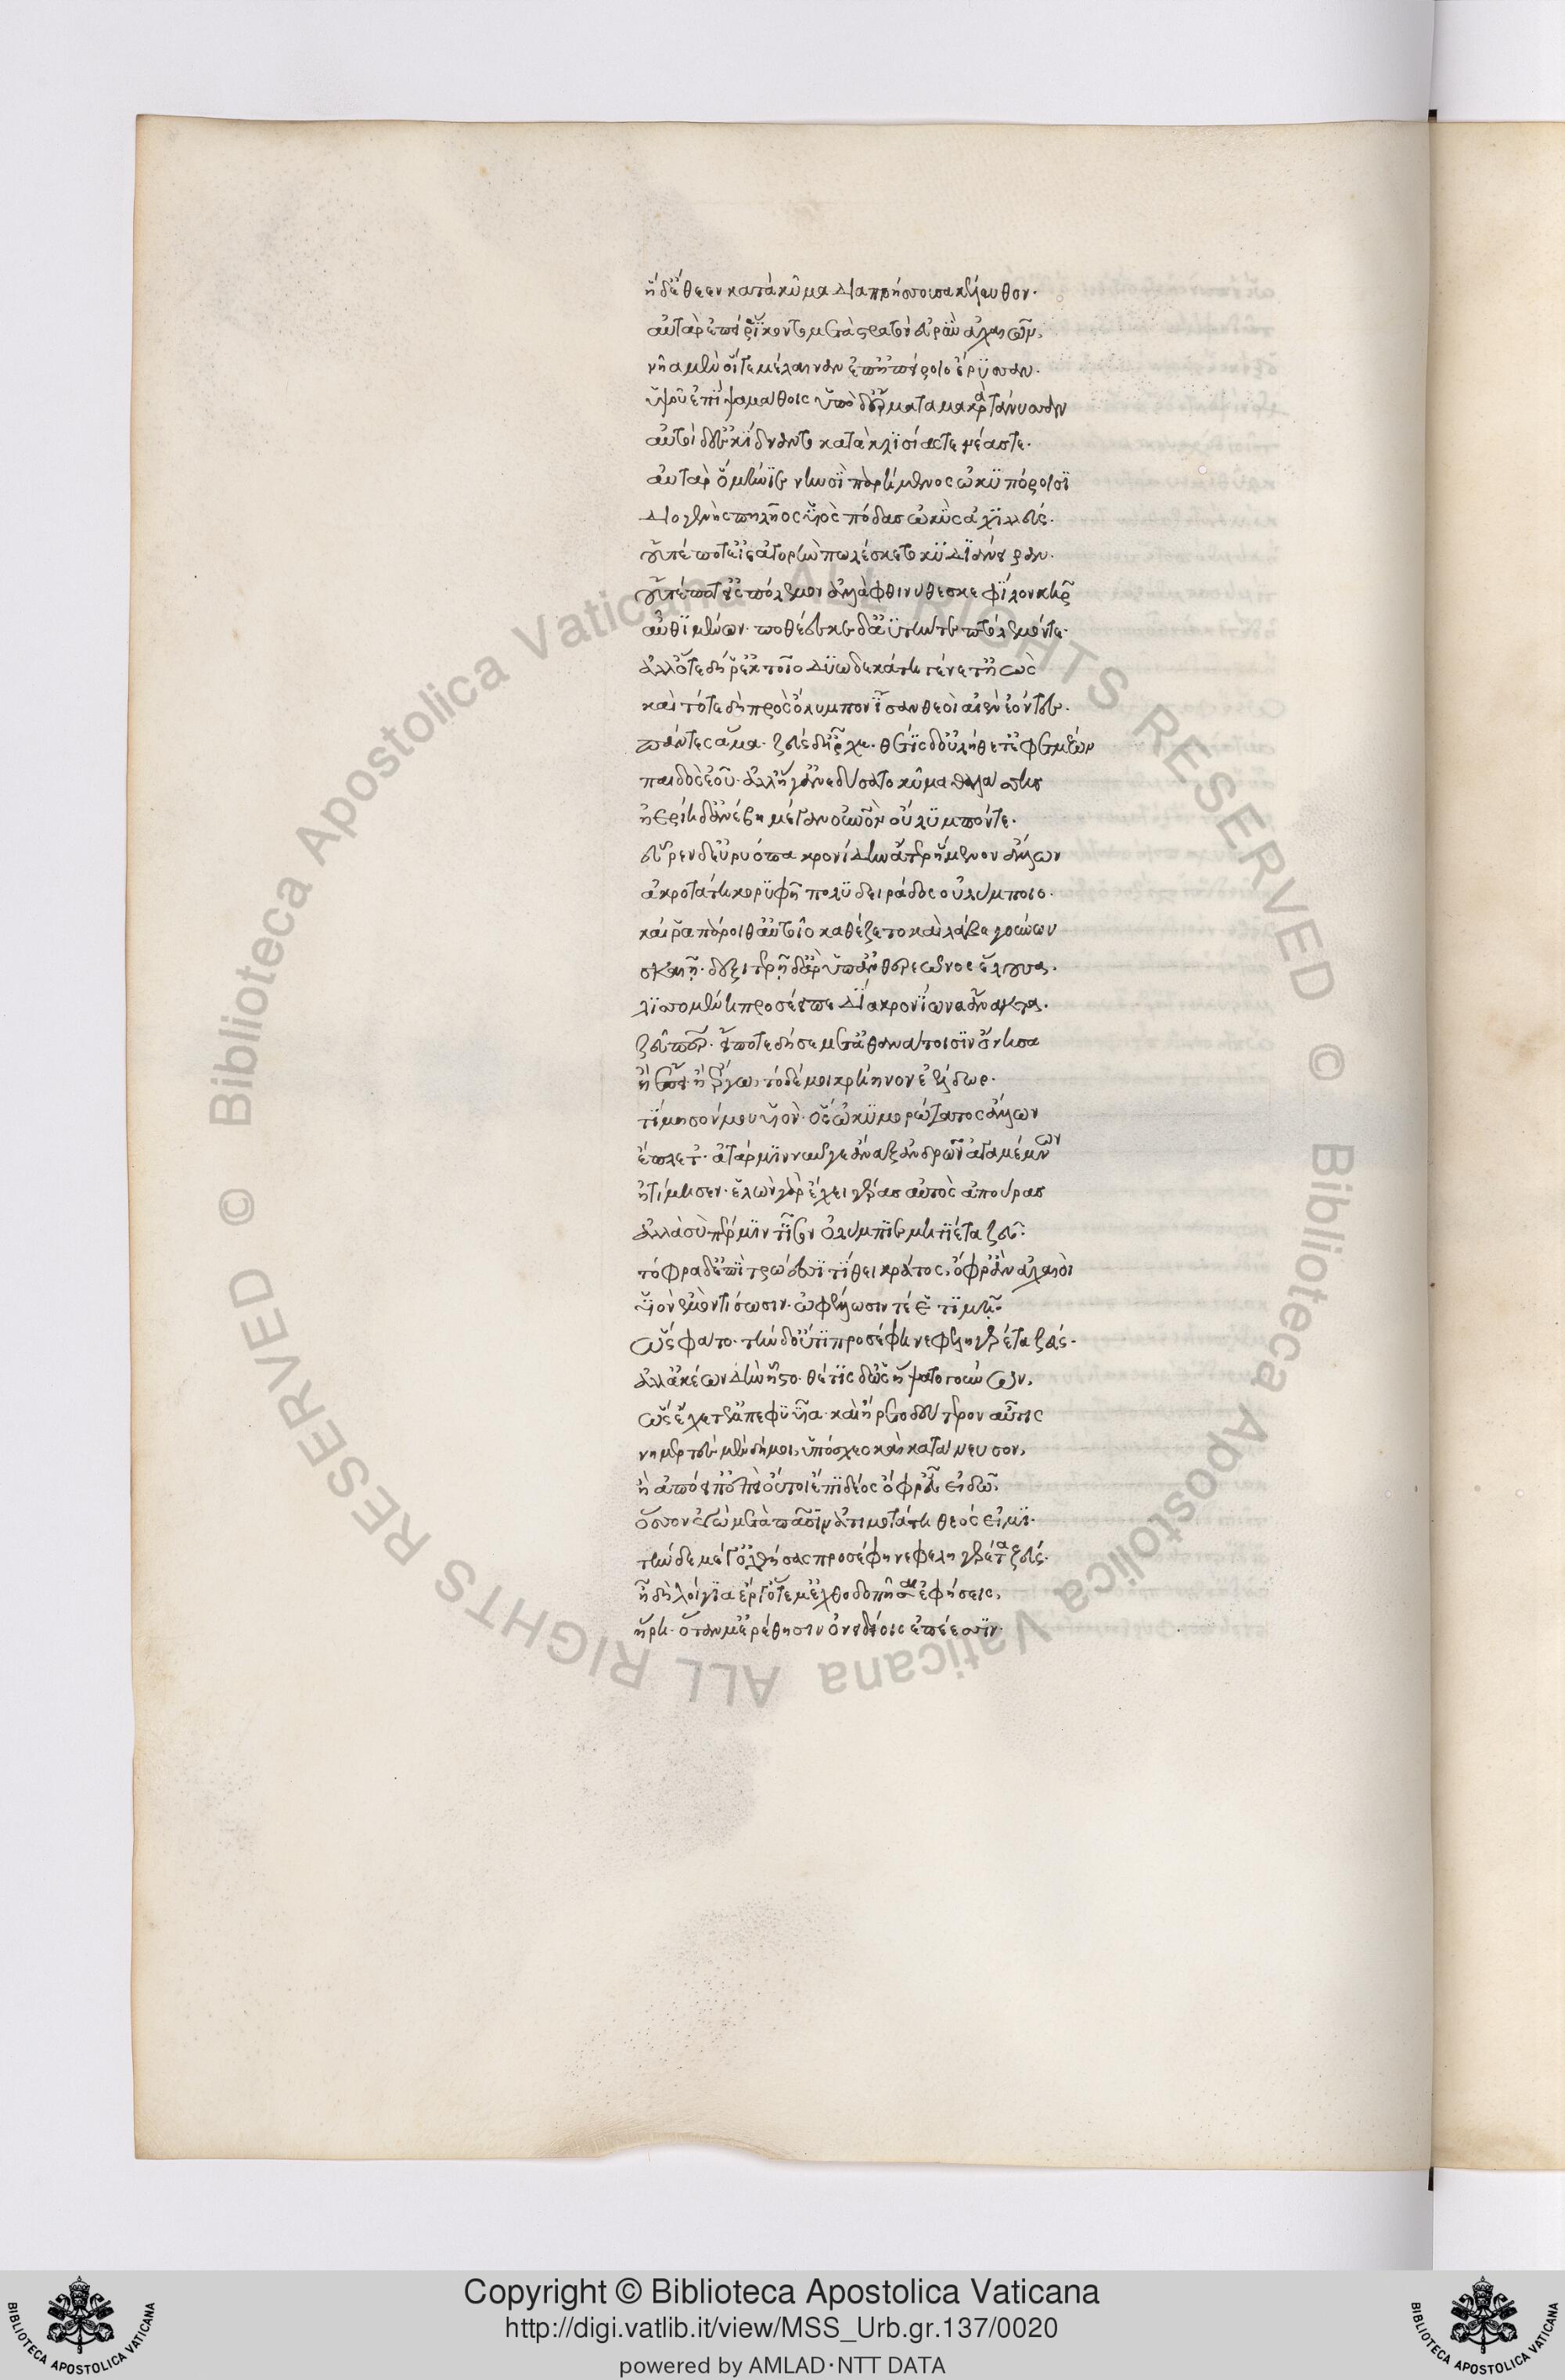 ἡ δ᾽ ἔθεεν κατὰ κῦμα διαπρήσσουσα κέλευθον·
αὐτὰρ ἐπεί ῥ᾽ ἵκοντο μετὰ στρατὸν εὐρὺν ἀχαιῶν,
νῆα μὲν οἵ γε μέλαιναν ἐπ᾽ ἠπείροιο ἔρυσσαν·
ὑψοῦ ἐπὶ ψαμάθοις ὑπὸ δ᾽ ἕρματα μακρὰ τάνυσσαν
αὐτοὶ δ᾽ ἐσκίδναντο κατὰ κλισίας τε νέας τε·
αὐτὰρ ὁ μήνιε νηυσὶ παρήμενος ὠκυπόροισι
διογενὴς πηλῆος υἱὸς πόδας ὠκὺς ἀχιλλεύς·
οὔτέ ποτ᾽ εἰς ἀγορὴν πωλέσκετο κυδιάνειραν·
οὔτέ ποτ᾽ ἐς πόλεμον ἀλλὰ φθινύθεσκε φίλον κῆρ
αὖθι μένων· ποθέεσκε δ᾽ ἀϋτήν τε πτόλεμόν τε·
ἀλλ᾽ ὅτε δή ῥ᾽ ἐκ τοῖο δυωδεκάτη γένετ᾽ ἠὼς
καὶ τότε δὴ πρὸς ὄλυμπον ἴσαν θεοὶ αἰὲν ἐόντες·
πάντες ἅμα· ζεὺς δ᾽ ἦρχε· θέτις δ᾽ οὐ λήθετ᾽ ἐφετμέων
παιδὸς ἑοῦ· ἀλλ᾽ ἥγ᾽ ἀνεδύσατο κῦμα θαλάσσης
ἠερίη δ᾽ ἀνέβη μέγαν οὐρανὸν οὔλυμπόν τε·
εὗρεν δ᾽ εὐρύοπα κρονίδην ἄτερ ἥμενον ἄλλων
ἀκροτάτη κορυφῇ πολυδειράδος οὐλύμποιο·
καί ῥα πάροιθ᾽ αὐτοῖο καθέζετο καὶ λάβε γούνων
σκαιῇ· δεξιτερῇ δ᾽ ἄρ᾽ ὑπ᾽ ἀνθερεῶνος ἑλοῦσα·
λισσομένη προσέειπε δία κρονίωνα ἄνακτα·
ζεῦ πάτερ· εἴποτε δή σε μετ᾽ ἀθανάτοισιν ὄνησα
ἢ ἔπει· ἢ ἔργω, τόδε μοι κρήηνον ἐέλδωρ·
τίμησόν μου υἱὸν· ὃς ὠκυμορώτατος ἄλλων
ἔπλετ᾽· ἀτάρ μιν νῦν γε ἄναξ ἀνδρῶν ἀγαμέμνων
ἠτίμησεν· ἑλὼν γὰρ ἔχει γέρας αὐτὸς ἀπούρας
ἀλλὰ σὺ πέρ μιν τῖσον ὀλύμπιε μητίετα ζεῦ·
τόφρα δ᾽ ἐπὶ τρώεσσι τίθει κράτος, ὄφρ᾽ ἂν ἀχαιοὶ
υἱὸν ἐμὸν τίσωσιν· ὀφέλλωσίν τέ ἑ τιμῇ·
ὣς φάτο· τὴν δ᾽ οὔτι προσέφη νεφεληγερέτα ζεύς·
ἀλλ᾽ ἀκέων δὴν ἧστο· θέτις δ᾽ ὡς ἥψατο γούνων,
ὣς ἔχετ᾽ ἐμπεφυυῖα· καὶ ἤρετο δεύτερον αὖτις
νημερτὲς μὲν δή μοι, ὑπόσχεο καὶ κατάνευσον,
ἢ ἀπόειπ᾽ ἐπεὶ οὔ τοι ἔπι δέος ὄφρ᾽ εὖ εἰδῶ,
ὅσσον ἐγὼ μετὰ πᾶσιν ἀτιμοτάτη θεός εἰμι·
τὴν δὲ μέγ᾽ ὀχθήσας προσέφη νεφεληγερέτα ζεύς·
ἦ δὴ λοίγια ἔργ᾽ ὅτε μ᾽ ἐχθοδοπῆσαι ἐφήσεις,
ἥρῃ· ὅταν μ᾽ ἐρέθησιν ὀνειδείοις ἐπέεσσιν·
Copyright © Biblioteca Apostolica Vaticana
http://digi.vatlib.it/view/MSS_Urb.gr.137/0020
powered by AMLAD·NTT DATA
© Biblioteca Apostolica Vaticana ALL RIGHTS RESERVED
© Biblioteca Apostolica Vaticana ALL RIGHTS RESERVED
BIBLIOTECA APOSTOLICA VATICANA
BIBLIOTECA APOSTOLICA VATICANA